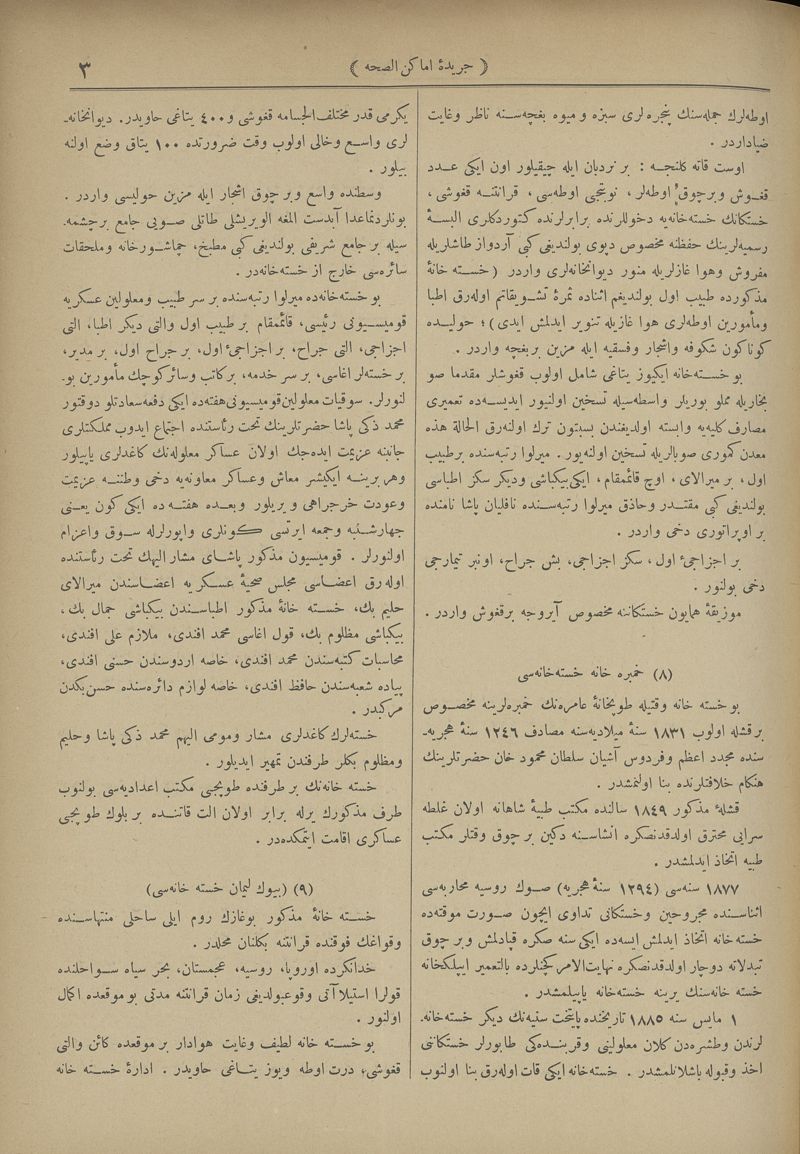 ﴿ جريدۀ اماكن الصحه ﴾
٣
اوطه‌لرك جمله‌سنك پنجره‌لری سبزه و ميوه بغچه‌سنه ناظر وغايت
ضياداردر .
اوست قاته كلنجه : بر نردبان ايله چيقيلور اون ايكی عدد
قغوش وبرچوق اوطه‌لر ، نوبتجی اوطه‌سی ، قرانتنه قغوشی ،
خستكانك خسته‌خانه‌يه دخوللرنده برابرلرنده كتوردكلری البسۀ
رسميه‌لرينك حفظنه مخصوص دپوی بولنديغی كبی آردواز طاشلريله
مفروش وهوا غازلريله منور ديوانخانه‌لری واردر ( خسته خانۀ
مذكورده طبيب اول بولنديغم اثناده ثمرۀ تشويقاتم اوله‌رق اطبا
ومأمورين اوطه‌لری هوا غازيله تنوير ايدلمش ايدی ) ؛ حوليده
كوناكون شكوفه واشجار وفسقيه ايله مزين بر بغچه واردر .
بو خسته‌خانه ايكيوز يتاغی شامل اولوب قغوشلر مقدما صو
بخاريله مملو بوريلر واسطه‌سيله تسخين اولنيور ايديسه‌ده تعميری
مصارف كليه‌يه وابسته اولديغندن بسبتون ترك اولنه‌رق الحالة هذه
معدن كموری صوبالريله تسخين اولنه‌يور . ميرلوا رتبه‌سنده برطبيب
اول ، بر ميرالای ، اوچ قائمقام ، ايكی بيكباشی وديكر سكز اطباسی
بولنديغی كبی مقتدر وحاذق ميرلوا رتبه‌سنده نافليان پاشا نامنده
بر اوپراتوری دخی واردر .
بر اجزاجیء اول ، سكز اجزاجی ، بش جراح ، اونبر تيمارجی
دخی بولنور .
موزيقۀ همايون خستكاننه مخصوص آيروجه برقغوش واردر .
(٨) خمبره خانه خسته‌خانه‌سی
بو خسته خانه وقتيله طوپخانۀ عامره‌نك خمبره‌لرينه مخصوص
بر قشله اولوب ١٨٣١ سنۀ ميلاديه‌سنه مصادف ١٢٤٦ سنۀ هجريه‌ـ
سنده مجدد اعظم وفردوس آشيان سلطان محمود خان حضرتلرينك
هنكام خلافتلرنده بنا اولنمشدر .
قشلۀ مذكور ١٨٤٩ سالنده مكتب طبيۀ شاهانه اولان غلطه
سرايی محترق اولدقدنصكره انشاسنه دكين بر چوق وقتلر مكتب
طبيه اتخاذ ايدلمشدر .
١٨٧٧ سنه‌سی (١٢٩٤ سنۀ هجريه) صوك روسيه محاربه‌سی
اثناسنده مجروحين وخستكانی تداوی ايچون صورت موقته‌ده
خسته خانه اتخاذ ايدلمش ايسه‌ده ايكی سنه صكره قپادلمش وبرچوق
تبدلاته دوچار اولدقدنصكره نهايت‌الامر كچنلرده بالتعمير ايپلكخانه
خسته خانه‌سنك يرينه خسته‌خانه ياپيلمشدر .
١ مايس سنه ١٨٨٥ تاريخنده پايتخت سنيه‌نك ديكر خسته‌خانه‌ـ
لرندن وطشره‌دن كلان معلولينی وقربنده‌كی طابورلر خستكانی
اخذ وقبوله باشلانلمشدر . خسته‌خانه ايكی قات اوله‌رق بنا اولنوب
يكرمی قدر مختلف الجسامه قغوشی و ٤٠٠ يتاغی حاويدر . ديوانخانه‌ـ
لری واسع وخالی اولوب وقت ضرورتده ١٠٠ يتاق وضع اولنه
بيلور .
وسطنده واسع وبر چوق اشجار ايله مزين حوليسی واردر .
بونلردنماعدا آبدست المغه الويريشلی طاتلی صويی جامع برچشمه‌ـ
سيله بر جامع شريفی بولنديغی كبی مطبخ ، چماشورخانه وملحقات
سائره‌سی خارج از خسته‌خانه‌در .
بو خسته‌خانه‌ده ميرلوا رتبه‌سنده بر سر طبيب ومعلولين عسكريه
قوميسيونی رئيسی ، قائمقام بر طبيب اول والتی ديكر اطبا ، التی
اجزاجی ، التی جراح ، بر اجزاجیء اول ، بر جراح اول ، بر مدير ،
بر خسته‌لر اغاسی ، بر سر خدمه ، بر كاتب وسائر كوچك مأمورين بو‌ـ
لنورلر . سوقيات معلولين قوميسيونی هفته‌ده ايكی دفعه سعادتلو دوقتور
محمد ذكی پاشا حضرتلرينك تحت رئاستنده اجتماع ايدوب مملكتلری
جانبنه عزيمت ايده‌جك اولان عساكر معلوله‌نك كاغدلری ياپيلور
وهر برينه ايكيشر معاش وعساكر معاونه‌يه دخی وطننه عزيمت
وعودت خرجراهی ويريلور وبعده هفته‌ده ايكی كون يعنی
چهارشنبه وجمعه ايرتسی كونلری واپورلرله سوق واعزام
اولنورلر . قوميسيون مذكور پاشای مشار اليهك تحت رئاستنده
اوله‌رق اعضاسی مجلس صحيۀ عسكريه اعضاسندن ميرالای
حليم بك ، خسته خانۀ مذكور اطباسندن بيكباشی جمال بك ،
بيكباشی مظلوم بك ، قول اغاسی محمد افندی ، ملازم علی افندی ،
محاسبات كتبه‌سندن محمد افندی ، خاصه اردوسندن حسنی افندی ،
پياده شعبه‌سندن حافظ افندی ، خاصه لوازم دائره‌سنده حسن بكدن
مركبدر .
خسته‌لرك كاغدلری مشار ومومی اليهم محمد ذكی پاشا وحليم
ومظلوم بكلر طرفندن تمهير ايديلور .
خسته خانه‌نك بر طرفنده طوپجی مكتب اعداديه‌سی بولنوب
طرف مذكورك يرله برابر اولان الت قاتنده بر بلوك طوپجی
عساكری اقامت ايتمكده‌در .
(٩) (بيوك ليمان خسته خانه‌سی)
خسته خانۀ مذكور بوغازك روم ايلی ساحلی منتهاسنده
وقواغك فوقنده قرانتنه بكلنان محلدر .
خدانكرده اوروپا ، روسيه ، عجمستان ، بحر سياه سواحلنده
قولرا استيلاآتی وقوعبولديغی زمان قرانتنه مدتی بو موقعده اكمال
اولنور .
بو خسته خانه لطيف وغايت هوادار بر موقعده كائن والتی
قغوشی ، درت اوطه ويوز يتاغی حاويدر . ادارۀ خسته خانه